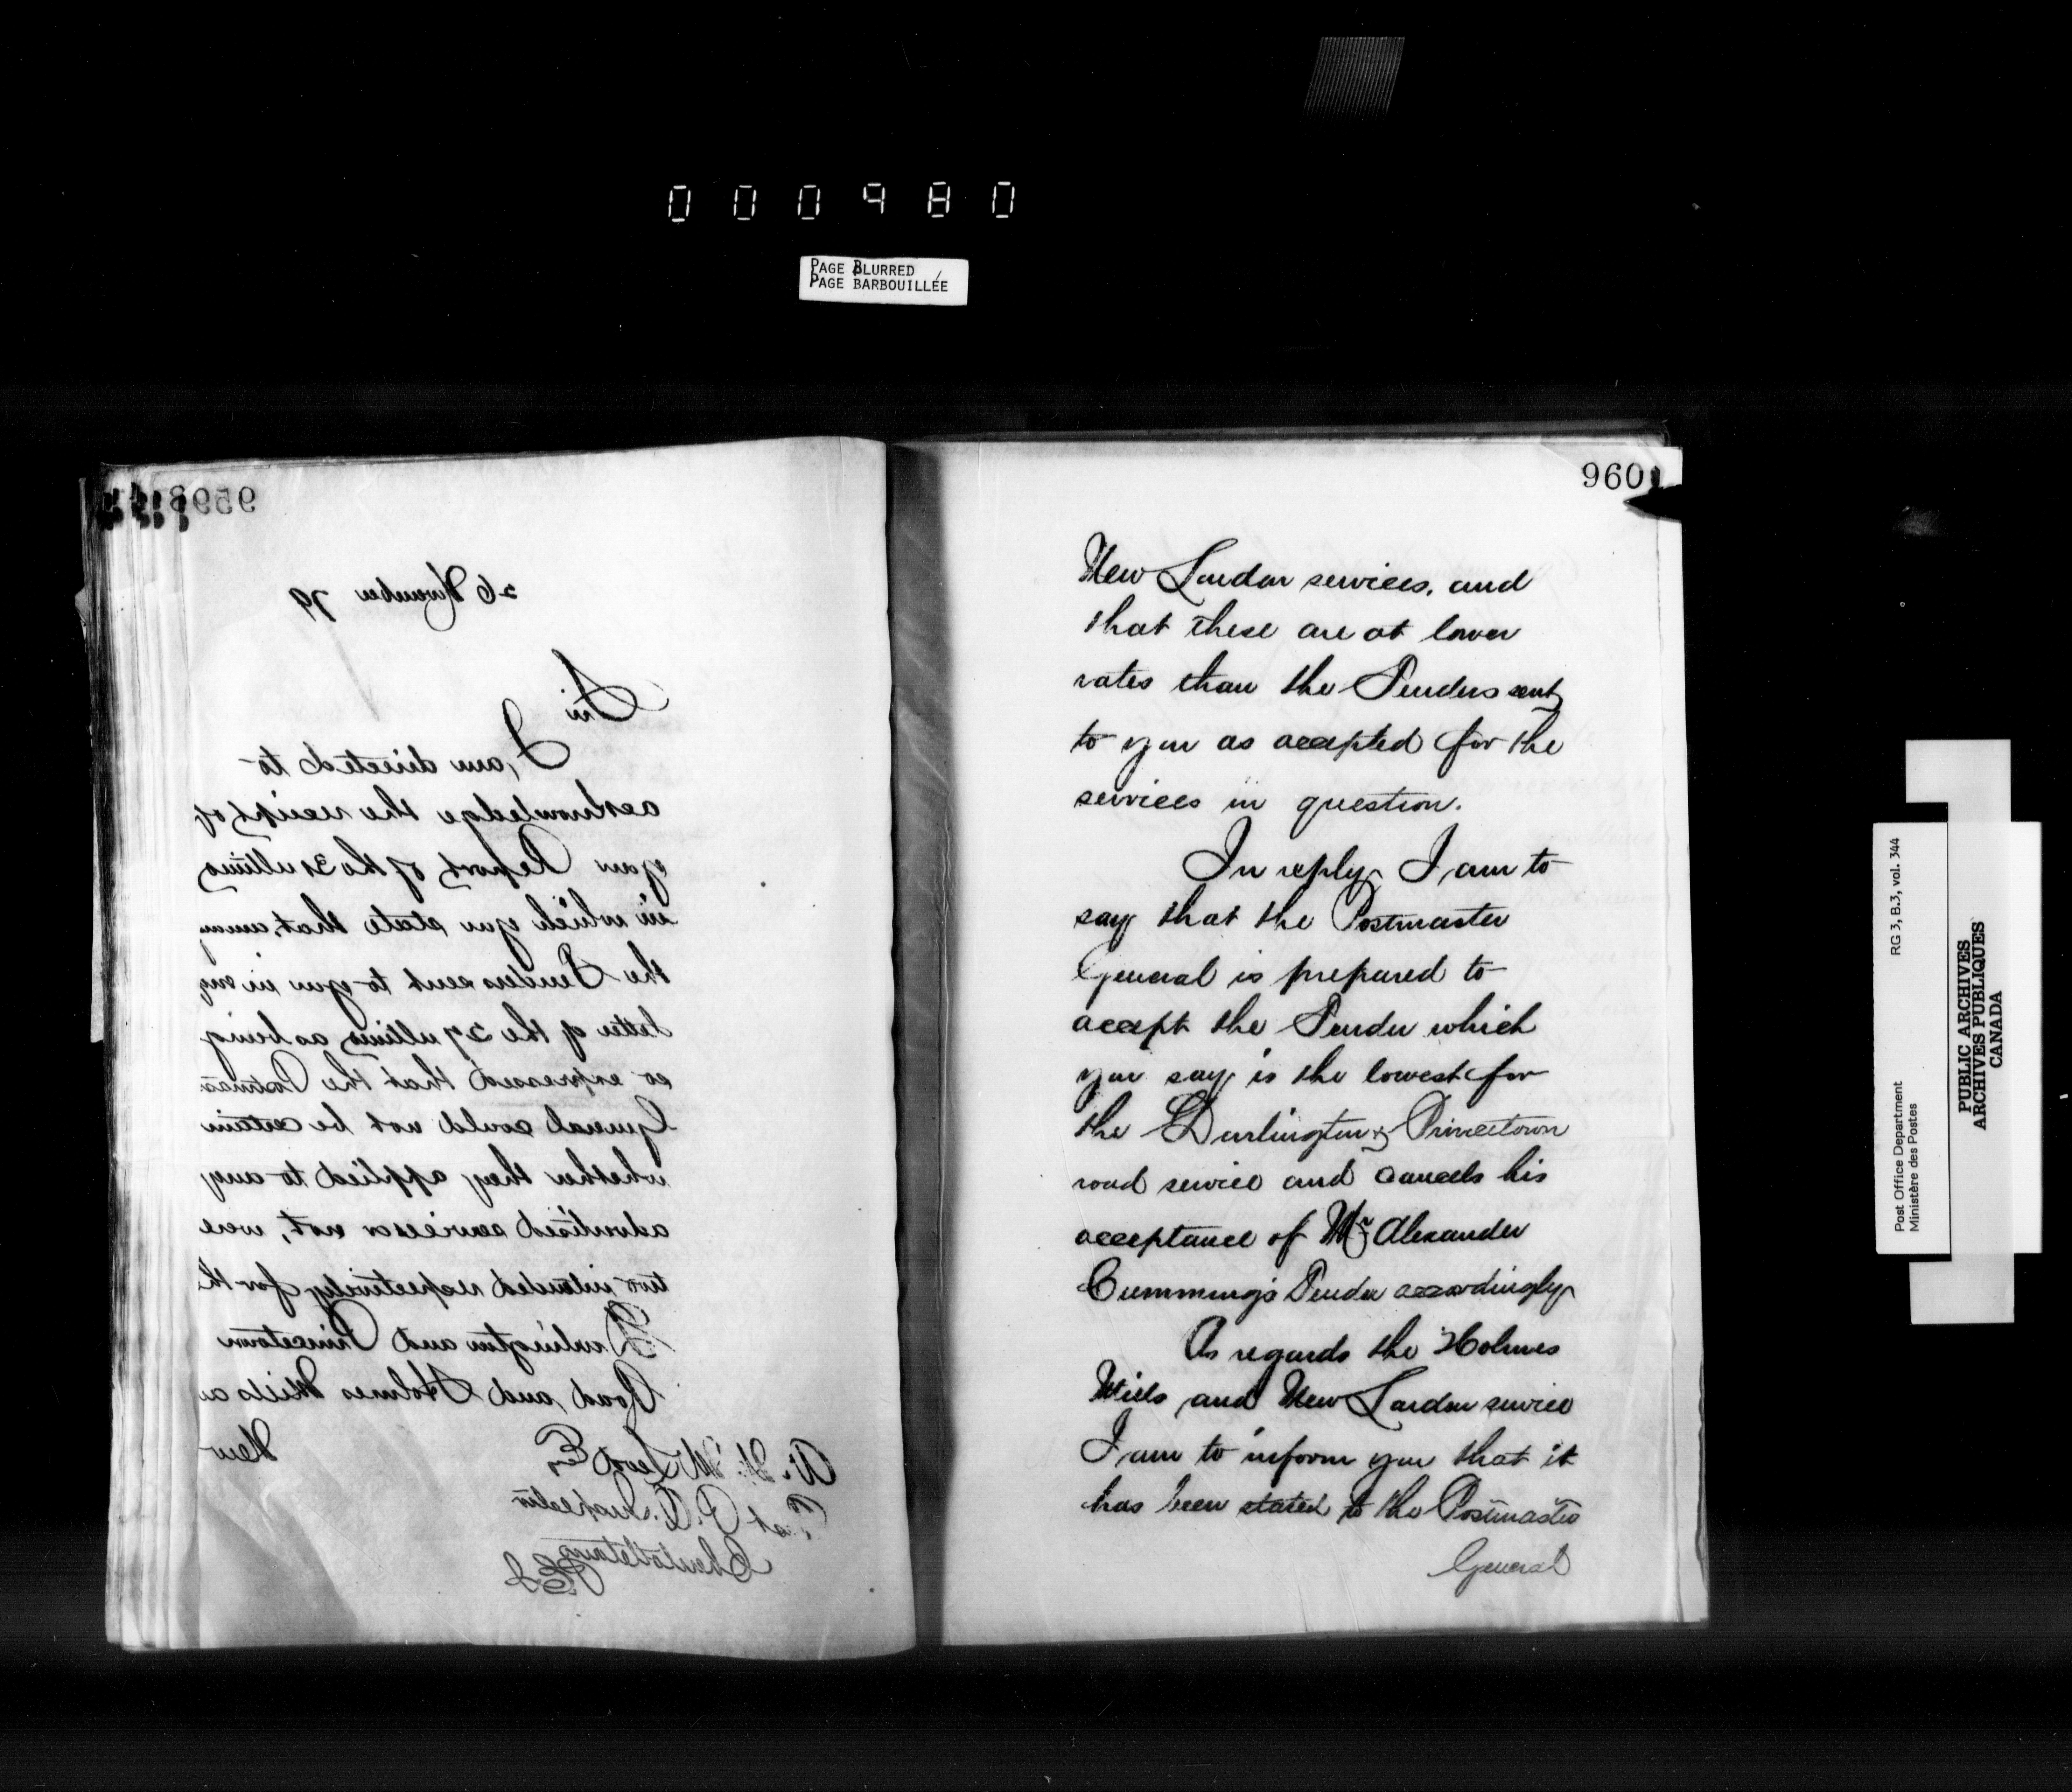 000980
PAGE BLURRED
PAGE BARBOUILLÉE
959
26 November 79
Sir
I am directed to
acknowledge the receipt of
your Report of the 31 ultimo
in which you state that, among
the Tenders sent to you in my
letter of the 27 ultimo as being
so expressed that the Postmaster
General could not be certain
whether they applied to any
advertised services or not, were
two intended respectively for the
Darlington and Princetown
Road and Holmes Mills and
New
P. O. Inspector
Charlottetown
PEI
960
New London services, and
that these are at lower
rates than the Tenders sent
to you as accepted for the
services in question.
In reply I am to
say that the Postmaster
General is prepared to
accept the Tender which
you say is the lowest for
the Darlington & Princetown
road service and cancels his
acceptance of Mr Alexander
Cummings Tender accordingly
As regards the Holmes
Mills and New London service
I am to inform you that it
has been stated to the Postmaster
General
RG 3, B.3, vol. 344
Post Office Department
Ministère des Postes
PUBLIC ARCHIVES
ARCHIVES PUBLIQUES
CANADA